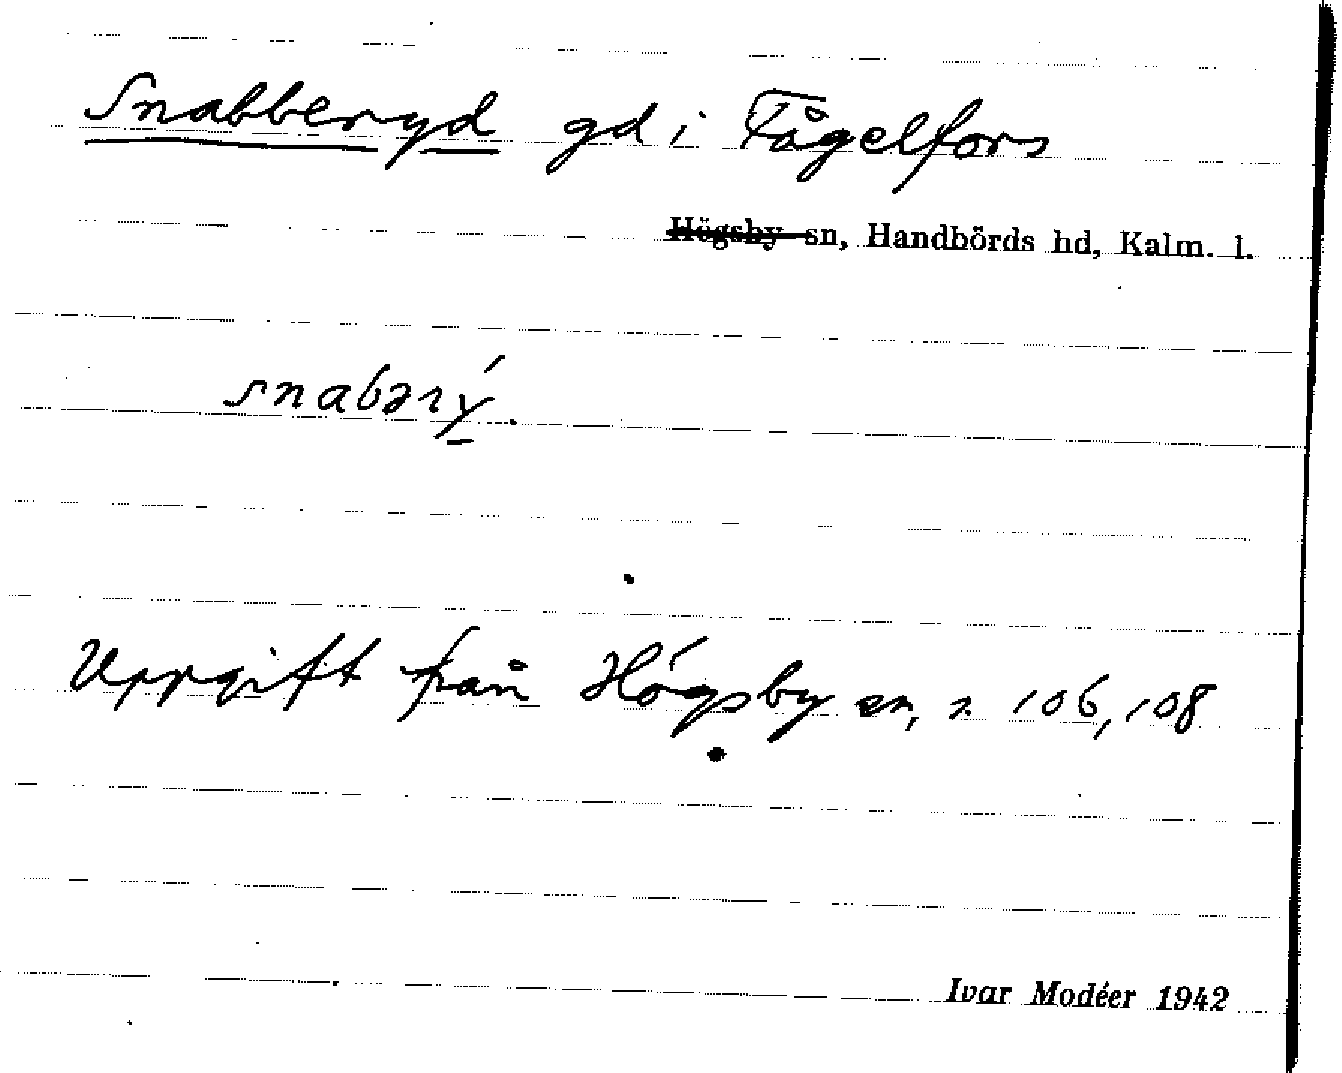 Snabberyd gd i Fågelfors
Högsby sn, Handbörds hd, Kalm. l.
snabərý.
Uppgift från Högsby sn, s. 106, 108
Ivar Modéer 1942